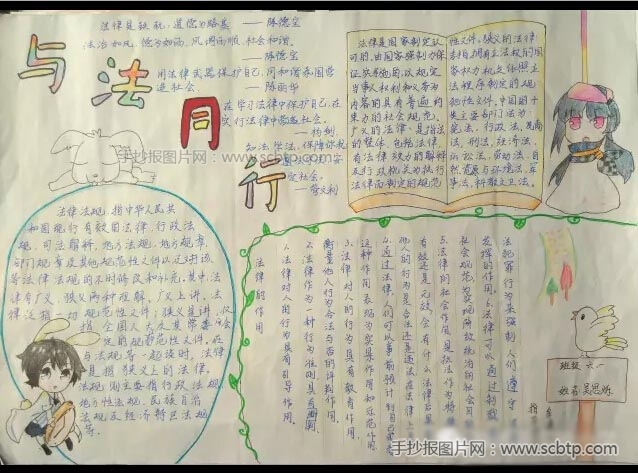 与法同行
法律是航帆，道德为路基
——陈德宝
法治如风，德为如雨，风调雨顺，社会和谐。
——陈德宝
用法律武器保护自己，用和谐氛围营
造社会。——陈丽华
在学习法律中保护自己，在
实行法律中营造社会。
——杨钊
知法学法，保障你我
定社会。
法律是国家制定认
可的，由国家强制力保
证实施的，以规定
当事人权利和义务为
内容的具有普遍约
束力的社会规范。
广义的法律，是指法
的整体，包括法律、
有法律效力的解释
及行政机关为执行
法律而制定的规范
性文件。狭义的法律
专指拥有立法权的国
家权力机关依照立
法程序制定的规范
性文件。中国的十
大主要部门法为：
宪法，行政法，民商
法，刑法，经济法，
诉讼法，劳动法，自
然资源与环境法，军
事法，科教文卫法。
法律法规，指中华人民共
和国现行有效的法律、行政法
规、司法解释、地方法规、地方规章、
部门规章及其他规范性文件以及对该
等法律法规的不时修改和补充。其中，法
律有广义、狭义两种理解。广义上讲，法
律泛指一切规范性文件；狭义是讲，仅
指全国人大及其常委会
定的规范性文件。在
与法规等一起谈时，法律
是指狭义上的法律。
法规则主要指行政法规、
地方性法规、民族自治
法规及经济特区法规
等。
法律的作用
1.法律对人的行为具有引导作用。
2.法律作为一种行为准则，具有判断、
衡量他人行为合法与否的评判作用。
3.法律对人的行为具有教育作用。
这种作用表现为实具作用和示范作用。
4.通过法律人们可以事前预计到自己或
他人的行为是合法还是违法，在法律上是
有效还是无效，会有什么法律后果。
5.法律的社会作用是执法作为特殊
社会规范为实现所欲统治的社会目
发挥的作用。6.法律可以通过制裁
违法犯罪行为来强制人们遵守法
班级 六一
姓名 吴思娜
手抄报图片网：www.scbtp.com
手抄报图片网：www.scbtp.com